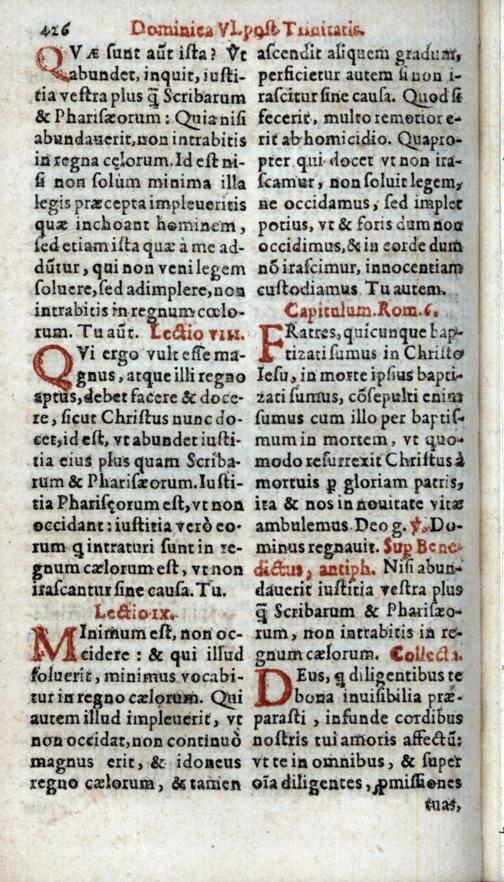 426 Dominica VI. post Trinitatis.
QVæ sunt aũt ista? Vt
abundet, inquit, iusti-
tia vestra plus q̃ Scribarum
& Pharisæorum: Quia nisi
abundauerit, non intrabitis
in regna cęlorum. Id est ni-
si non solùm minima illa
legis præcepta impleueritis
quæ inchoant hominem,
sed etiam ista quæ à me ad-
dũtur, qui non veni legem
soluere, sed adimplere, non
intrabitis in regnum cœlo-
rum. Tu aũt. Lectio VIII.
QVi ergo vult esse ma-
gnus, atque illi regno
aptus, debet facere & doce-
re, sicut Christus nunc do-
cet, id est, vt abundet iusti-
tia eius plus quam Scriba-
rum & Pharisæorum. Iusti-
tia Pharisęorum est, vt non
occidant: iustitia verò eo-
rum q intraturi sunt in re-
gnum cælorum est, vt non
irascantur sine causa. Tu.
Lectio ix.
MInimum est, non oc-
cidere: & qui illud
soluerit, minimus vocabi-
tur in regno cælorum. Qui
autem illud impleuerit, vt
non occidat, non continuò
magnus erit, & idoneus
regno cælorum, & tamen
ascendit aliquem gradum,
perficietur autem si non i-
rascitur sine causa. Quod si
fecerit, multo remotior e-
rit ab homicidio. Quapro-
pter qui docet vt non ira-
scamur, non soluit legem,
ne occidamus, sed implet
potius, vt & foris dum non
occidimus, & in corde dum
nõ irascimur, innocentiam
custodiamus. Tu autem.
Capitulum. Rom. 6.
FRatres, quicunque bap-
tizati sumus in Christo
Iesu, in morte ipsius bapti-
zati sumus, cõsepulti enim
sumus cum illo per baptis-
mum in mortem, vt quo-
modo resurrexit Christus à
mortuis ꝑ gloriam patris,
ita & nos in nouitate vitæ
ambulemus. Deo g. ℣. Do-
minus regnauit. Sup Bene-
dictus, antiph. Nisi abun-
dauerit iustitia vestra plus
q̃ Scribarum & Pharisæo-
rum, non intrabitis in re-
gnum cælorum. Collecta.
DEus, q diligentibus te
bona inuisibilia præ-
parasti, infunde cordibus
nostris tui amoris affectũ:
vt te in omnibus, & super
oĩa diligentes, ꝓmissiones
tuas,